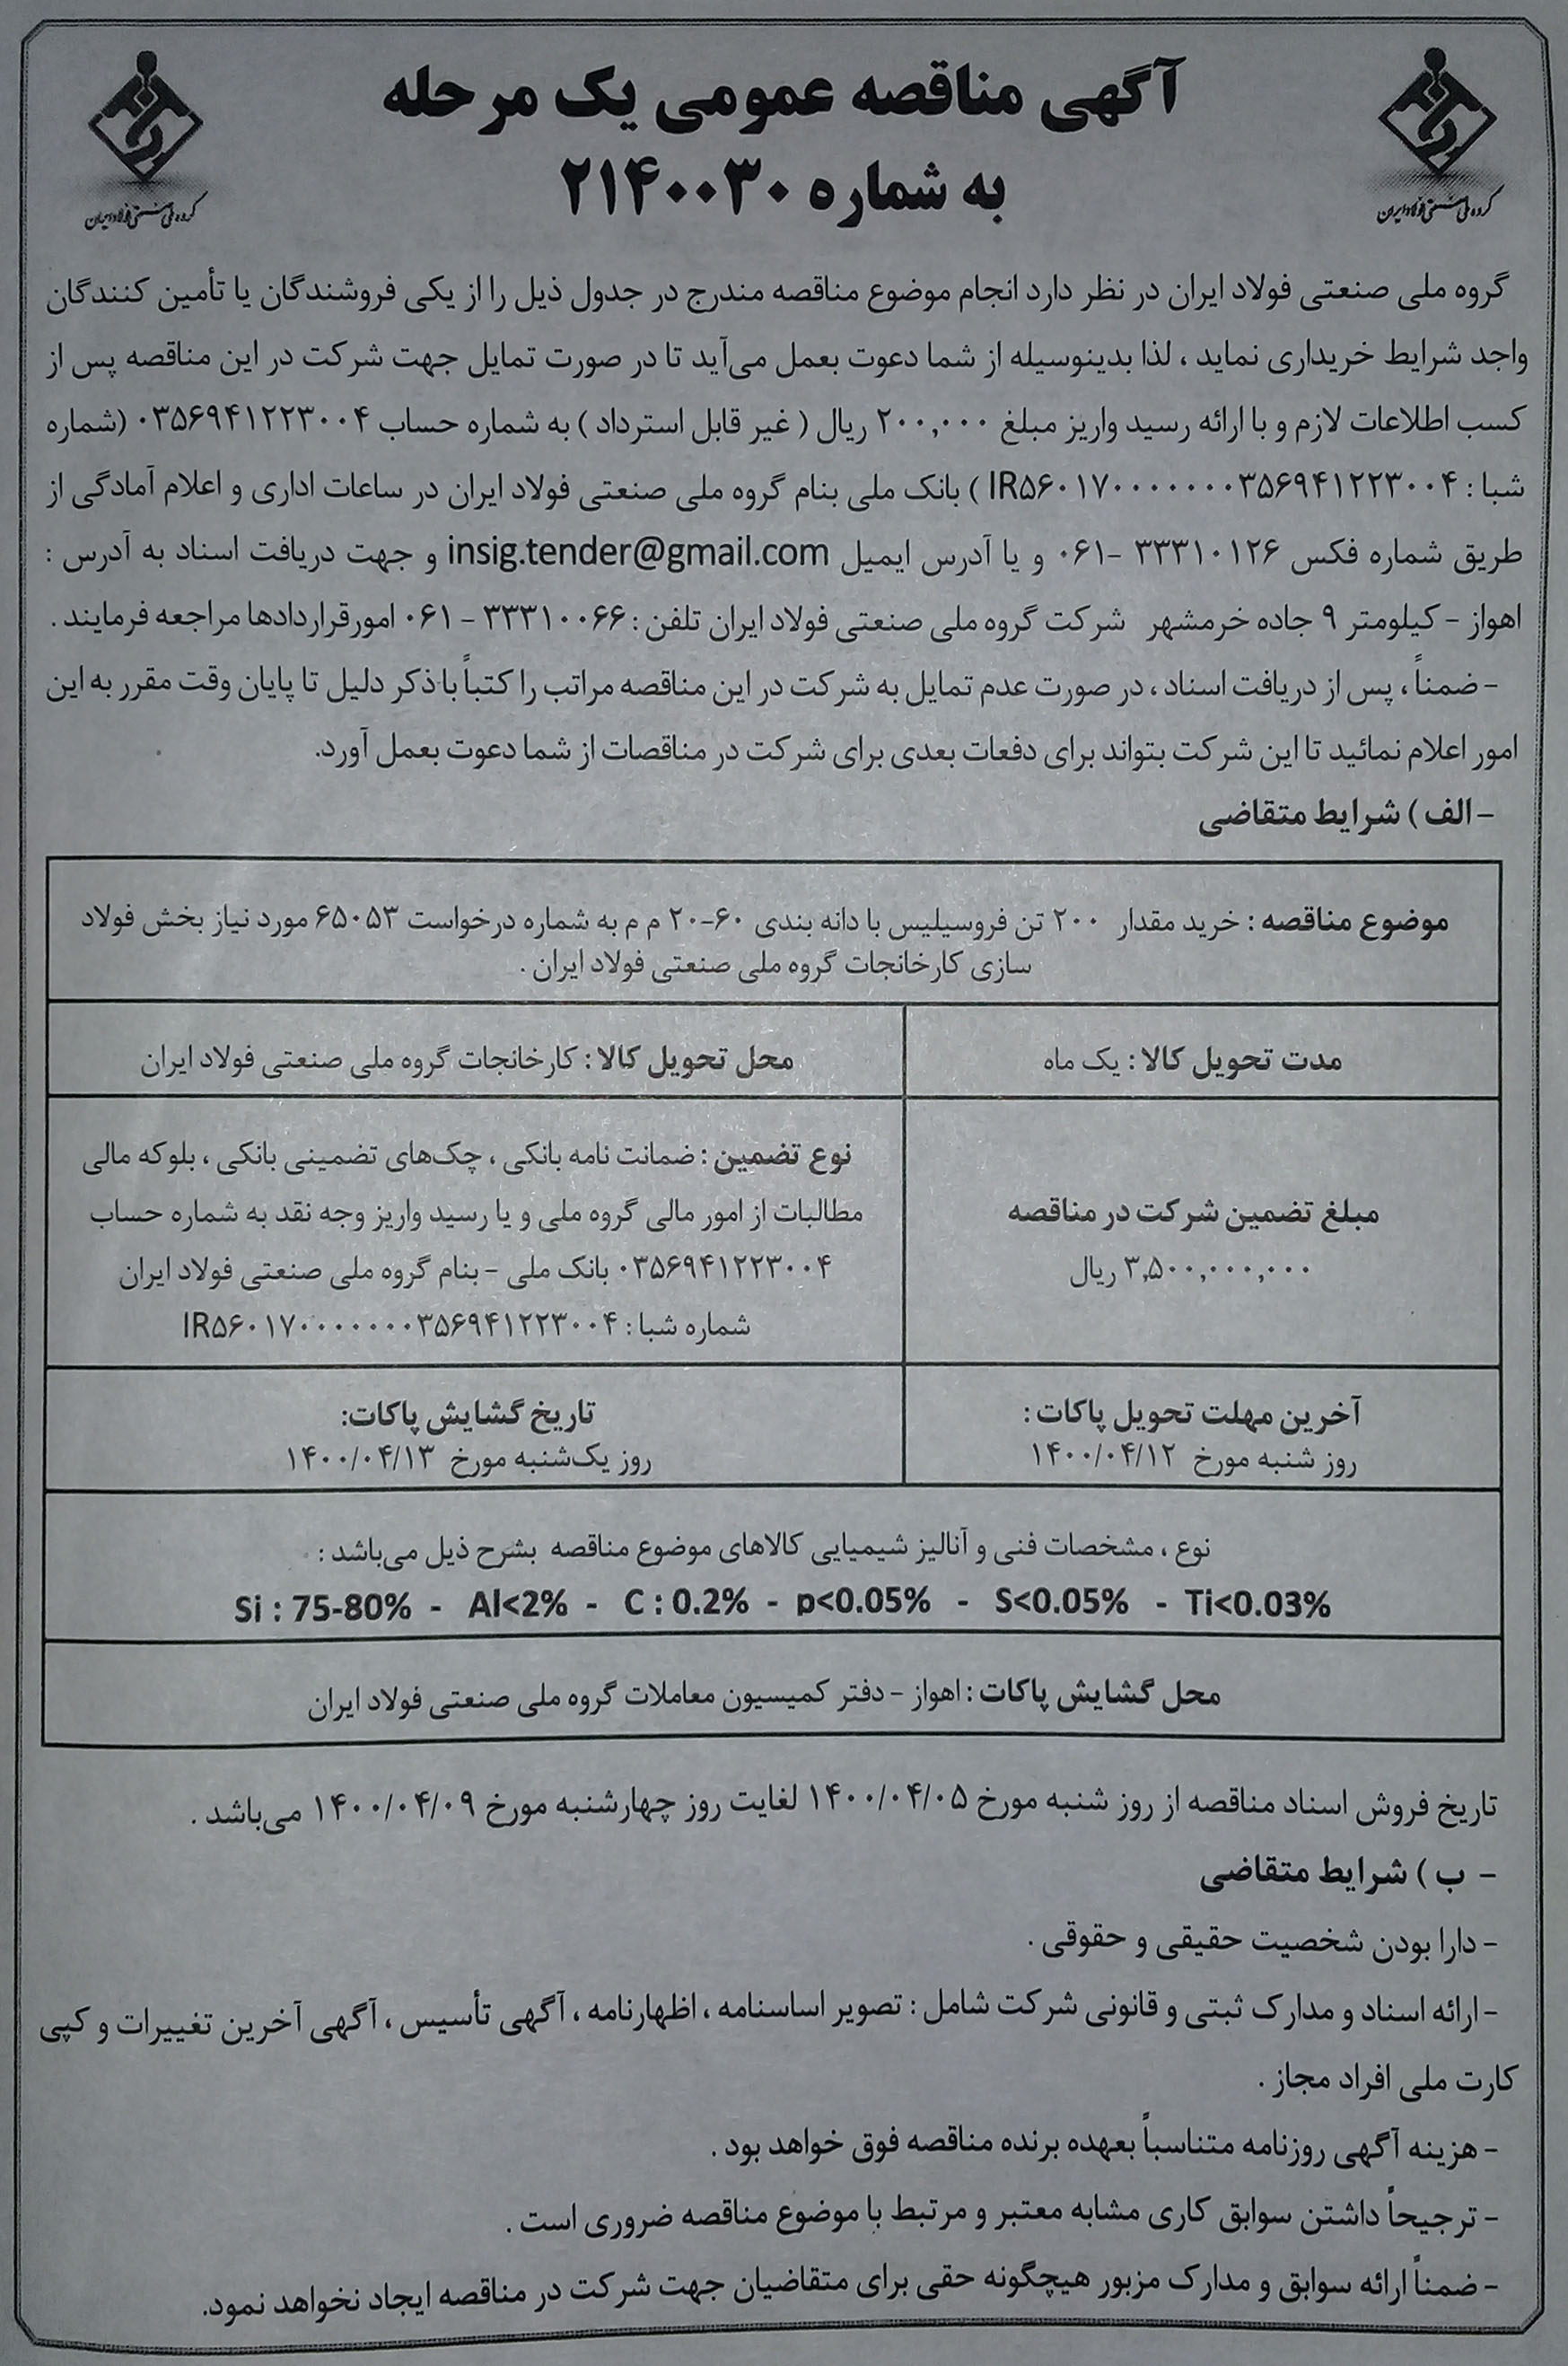 آگهی مناقصه عمومی یک مرحله
به شماره ۲۱۴۰۰۳۰
گروه ملی صنعتی فولاد ایران
گروه ملی صنعتی فولاد ایران
گروه ملی صنعتی فولاد ایران در نظر دارد انجام موضوع مناقصه مندرج در جدول ذیل را از یکی فروشندگان یا تأمین کنندگان
واجد شرایط خریداری نماید ، لذا بدینوسیله از شما دعوت بعمل می‌آید تا در صورت تمایل جهت شرکت در این مناقصه پس از
کسب اطلاعات لازم و با ارائه رسید واریز مبلغ ۲۰۰,۰۰۰ ریال ( غیر قابل استرداد ) به شماره حساب ۰۳۵۶۹۴۱۲۲۳۰۰۴ (شماره
شبا : IR۵۶۰۱۷۰۰۰۰۰۰۰۳۵۶۹۴۱۲۲۳۰۰۴ ) بانک ملی بنام گروه ملی صنعتی فولاد ایران در ساعات اداری و اعلام آمادگی از
طریق شماره فکس ۳۳۳۱۰۱۲۶ -۰۶۱ و یا آدرس ایمیل insig.tender@gmail.com و جهت دریافت اسناد به آدرس :
اهواز - کیلومتر ۹ جاده خرمشهر شرکت گروه ملی صنعتی فولاد ایران تلفن : ۳۳۳۱۰۰۶۶ - ۰۶۱ امورقراردادها مراجعه فرمایند .
- ضمناً ، پس از دریافت اسناد ، در صورت عدم تمایل به شرکت در این مناقصه مراتب را کتباً با ذکر دلیل تا پایان وقت مقرر به این
امور اعلام نمائید تا این شرکت بتواند برای دفعات بعدی برای شرکت در مناقصات از شما دعوت بعمل آورد.
- الف ) شرایط متقاضی
موضوع مناقصه : خرید مقدار ۲۰۰ تن فروسیلیس با دانه بندی ۶۰-۲۰ م م به شماره درخواست ۶۵۰۵۳ مورد نیاز بخش فولاد
سازی کارخانجات گروه ملی صنعتی فولاد ایران .
مدت تحویل کالا : یک ماه
محل تحویل کالا : کارخانجات گروه ملی صنعتی فولاد ایران
مبلغ تضمین شرکت در مناقصه
۳,۵۰۰,۰۰۰,۰۰۰ ریال
نوع تضمین : ضمانت نامه بانکی ، چک‌های تضمینی بانکی ، بلوکه مالی
مطالبات از امور مالی گروه ملی و یا رسید واریز وجه نقد به شماره حساب
۰۳۵۶۹۴۱۲۲۳۰۰۴ بانک ملی - بنام گروه ملی صنعتی فولاد ایران
شماره شبا : IR۵۶۰۱۷۰۰۰۰۰۰۰۳۵۶۹۴۱۲۲۳۰۰۴
آخرین مهلت تحویل پاکات :
روز شنبه مورخ ۱۴۰۰/۰۴/۱۲
تاریخ گشایش پاکات:
روز یک‌شنبه مورخ ۱۴۰۰/۰۴/۱۳
نوع ، مشخصات فنی و آنالیز شیمیایی کالاهای موضوع مناقصه بشرح ذیل می‌باشد :
Si : 75-80% - Al<2% - C : 0.2% - p<0.05% - S<0.05% - Ti<0.03%
محل گشایش پاکات : اهواز - دفتر کمیسیون معاملات گروه ملی صنعتی فولاد ایران
تاریخ فروش اسناد مناقصه از روز شنبه مورخ ۱۴۰۰/۰۴/۰۵ لغایت روز چهارشنبه مورخ ۱۴۰۰/۰۴/۰۹ می‌باشد .
- ب ) شرایط متقاضی
- دارا بودن شخصیت حقیقی و حقوقی .
- ارائه اسناد و مدارک ثبتی و قانونی شرکت شامل : تصویر اساسنامه ، اظهارنامه ، آگهی تأسیس ، آگهی آخرین تغییرات و کپی
کارت ملی افراد مجاز .
- هزینه آگهی روزنامه متناسباً بعهده برنده مناقصه فوق خواهد بود .
- ترجیحاً داشتن سوابق کاری مشابه معتبر و مرتبط با موضوع مناقصه ضروری است .
- ضمناً ارائه سوابق و مدارک مزبور هیچگونه حقی برای متقاضیان جهت شرکت در مناقصه ایجاد نخواهد نمود.